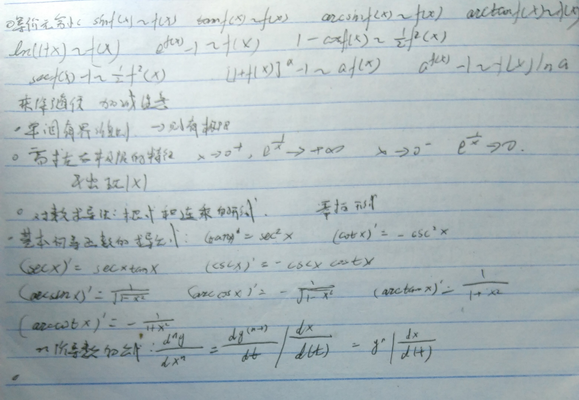 等价无穷小: sinf(x)~f(x) tanf(x)~f(x) arcsinf(x)~f(x) arctanf(x)~f(x)
ln(1+x)~f(x) e^f(x)-1~f(x) 1-cosf(x)~½f²(x)
secf(x)-1~½f²(x) [1+f(x)]^a-1~af(x) a^f(x)-1~f(x)lna
求 加减
·单调有界 →则有极限
。需求左右极限的特征 x→0⁺, e^(1/x)→+∞ x→0⁻ e^(1/x)→0.
或出现|x|
。对数求导法: 根式和连乘的形式. 幂指形式
·基本初等函数的求导公式: (tanx)'=sec²x (cotx)'=-csc²x
(secx)'=secxtanx (cscx)'=-cscx cotx
(arcsinx)'=1/√(1-x²) (arccosx)'=-1/√(1-x²) (arctanx)'=1/(1+x²)
(arccotx)'=-1/(1+x²)
n阶导数的公式: dⁿy/dxⁿ = dy^(n-1)/dt / dx/d(t) = y' / dx/d(t)